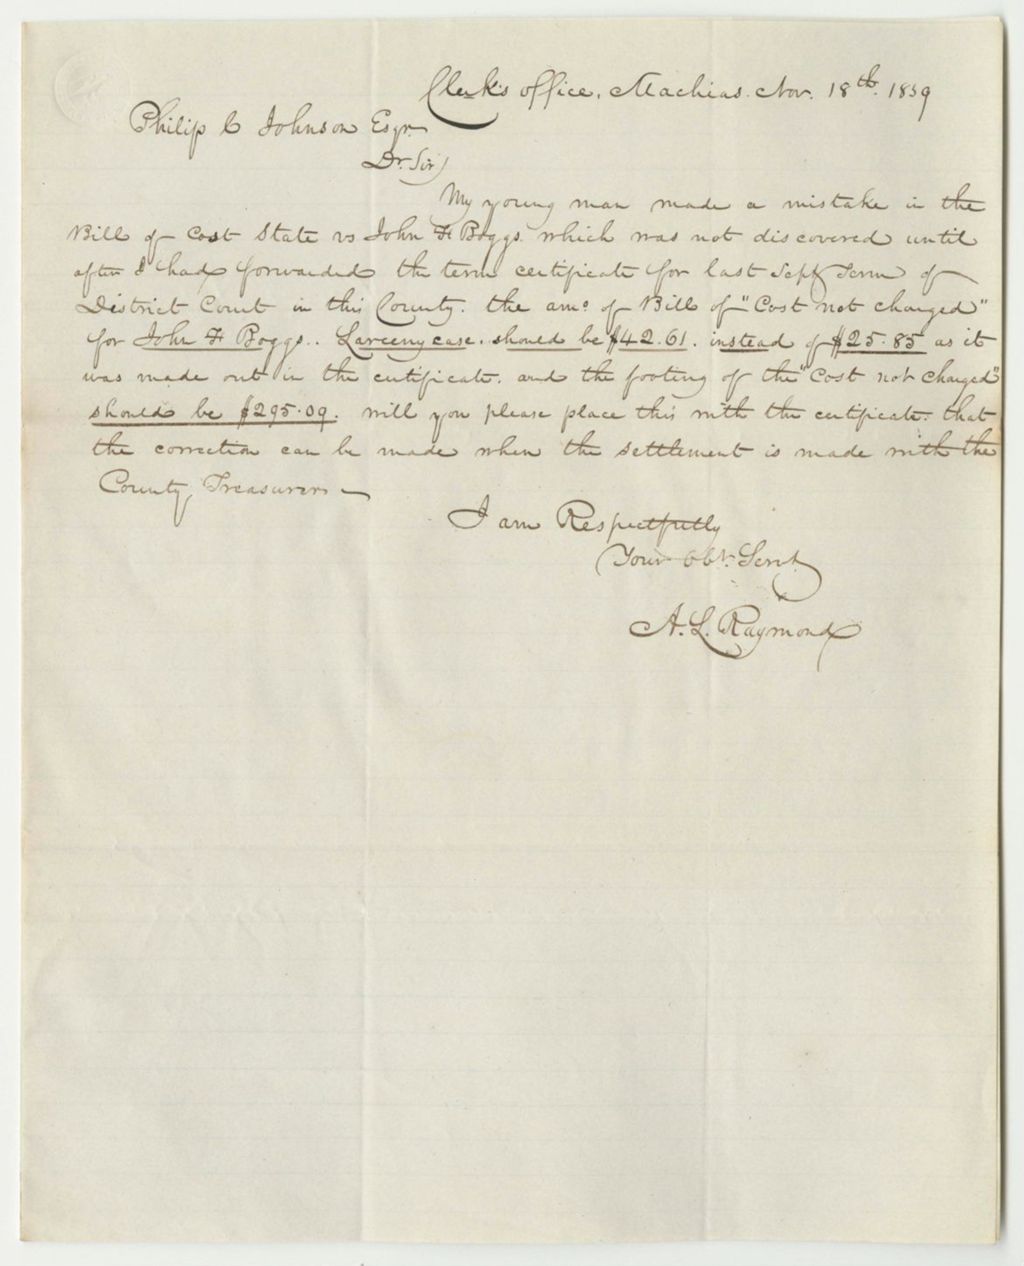 Clerk's office, Machias. Nov. 18th. 1839
Philip C Johnson Esqr
Dr. Sir,
My young man made a mistake in the
Bill of Cost State vs John F Boggs. which was not discovered until
after I had forwarded the term certificate for last Sept Term of
District Court in this County. the amo of Bill of "Cost not charged"
for John F Boggs.. Larceny case. should be $42.61. instead of $25.85 as it
was made out in the certificate. and the footing of the "Cost not charged"
should be $295.09. will you please place this with the certificate. that
the correction can be made when the settlement is made with the
County, Treasurer
I am Respectfully
Your obt. Servt.
A. L. Raymond